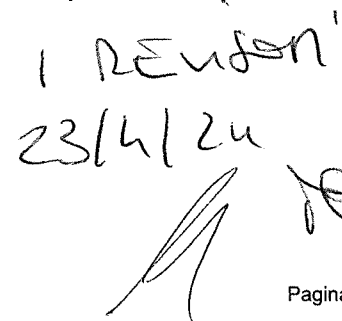 I REVISORI
23/4/24
Pagina